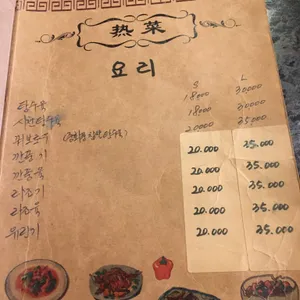 热菜
요리
S L
탕수육 18000 30,000
사천탕수육 18000 30000
찹쌀탕수육) 20000 35000
깐풍기 20.000 35.000
깐풍육 20.000 35.000
라조기 20.000 35.000
라조육 20.000 35.000
유린기 20.000 35.000